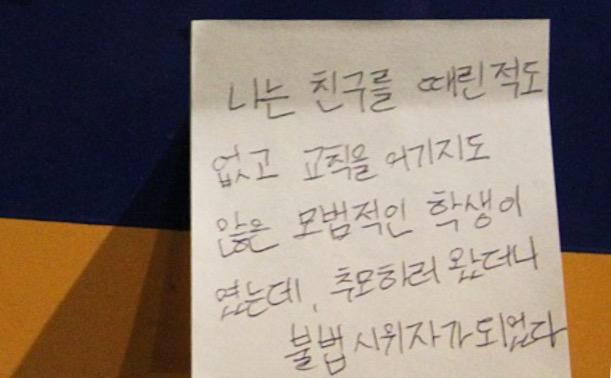 나는 친구를 때린적도
없고 교칙을 어기지도
않은 모범적인 학생이
였는데, 추모하러 왔더니
불법시위자가되었다